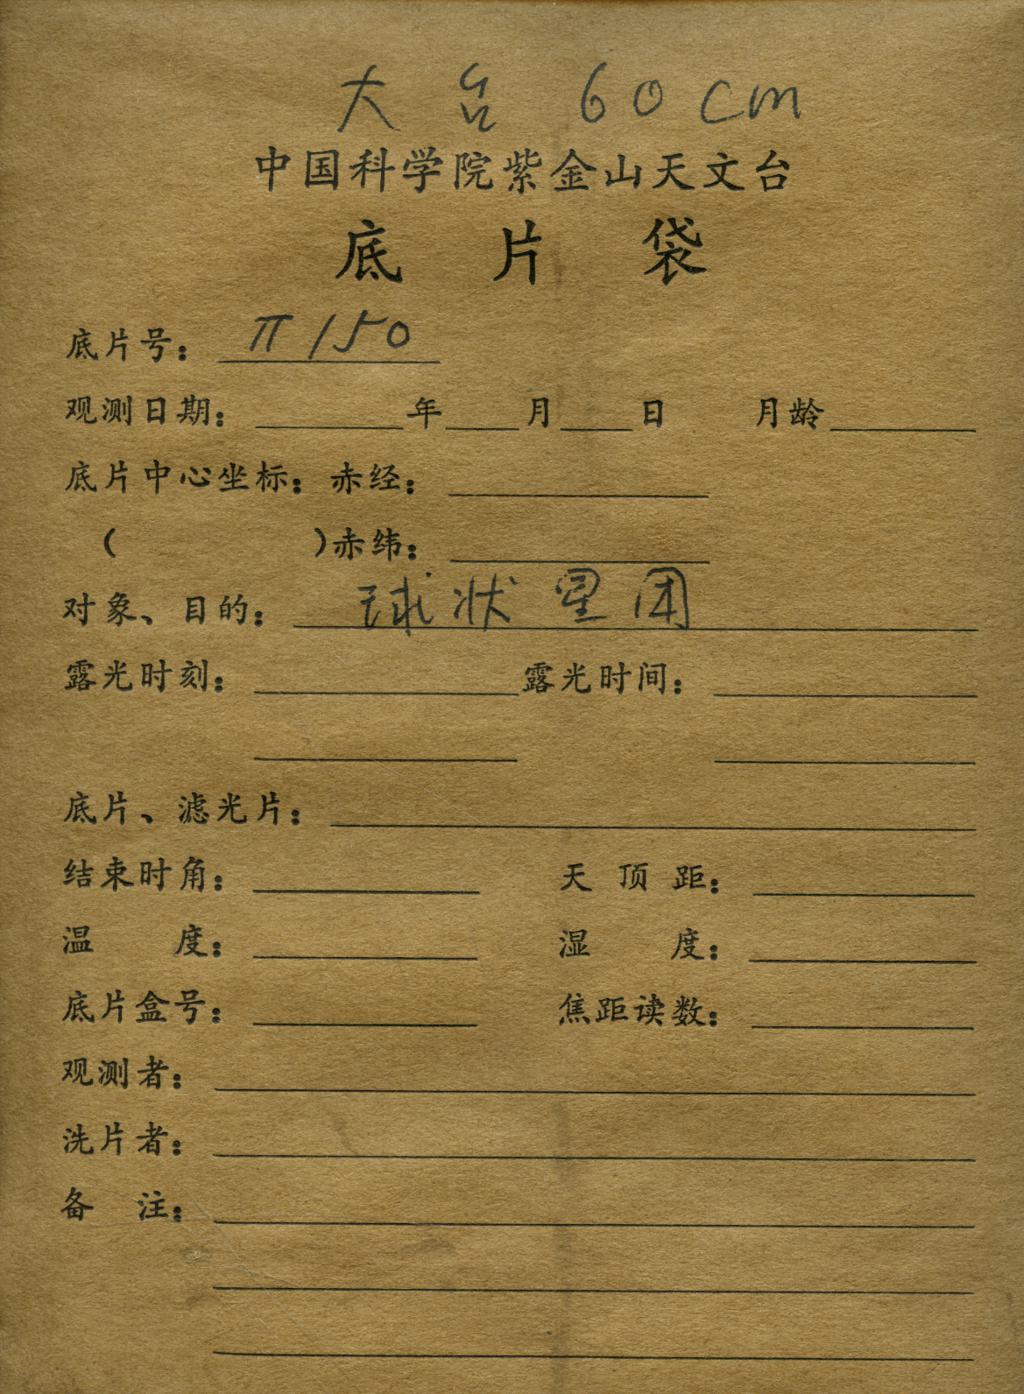 大台 60cm
中国科学院紫金山天文台
底片袋
底片号： π150
观测日期： 年 月 日 月龄
底片中心坐标：赤经：
（ ）赤纬：
对象、目的： 球状星团
露光时刻： 露光时间：
底片、滤光片：
结束时角： 天顶距：
温度： 湿度：
底片盒号： 焦距读数：
观测者：
洗片者：
备注：